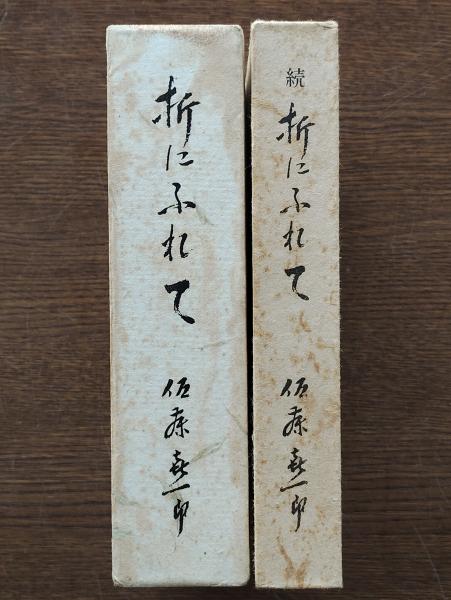 折にふれて
佐藤喜一郎
続
折にふれて
佐藤喜一郎